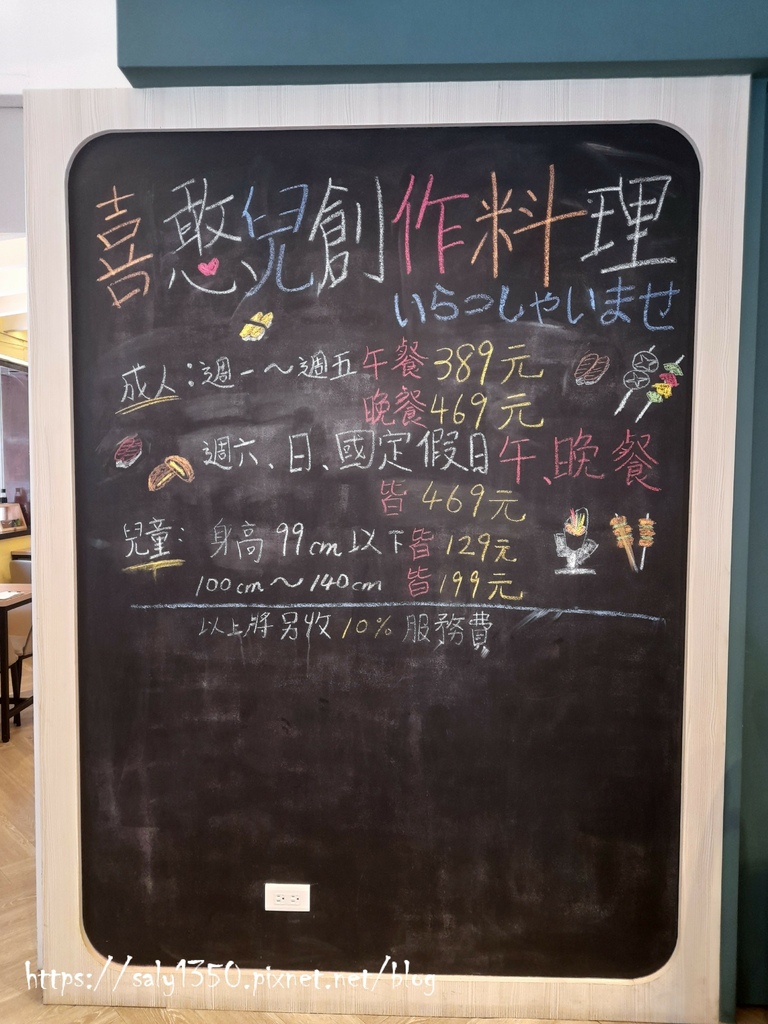 喜憨兒創作料理
いらっしゃいませ
成人：週一～週五午餐389元
晚餐469元
週六、日、國定假日午、晚餐
皆469元
兒童：身高99cm以下皆129元
100cm～140cm 皆199元
以上將另收10%服務費
https://saly1350.pixnet.net/blog